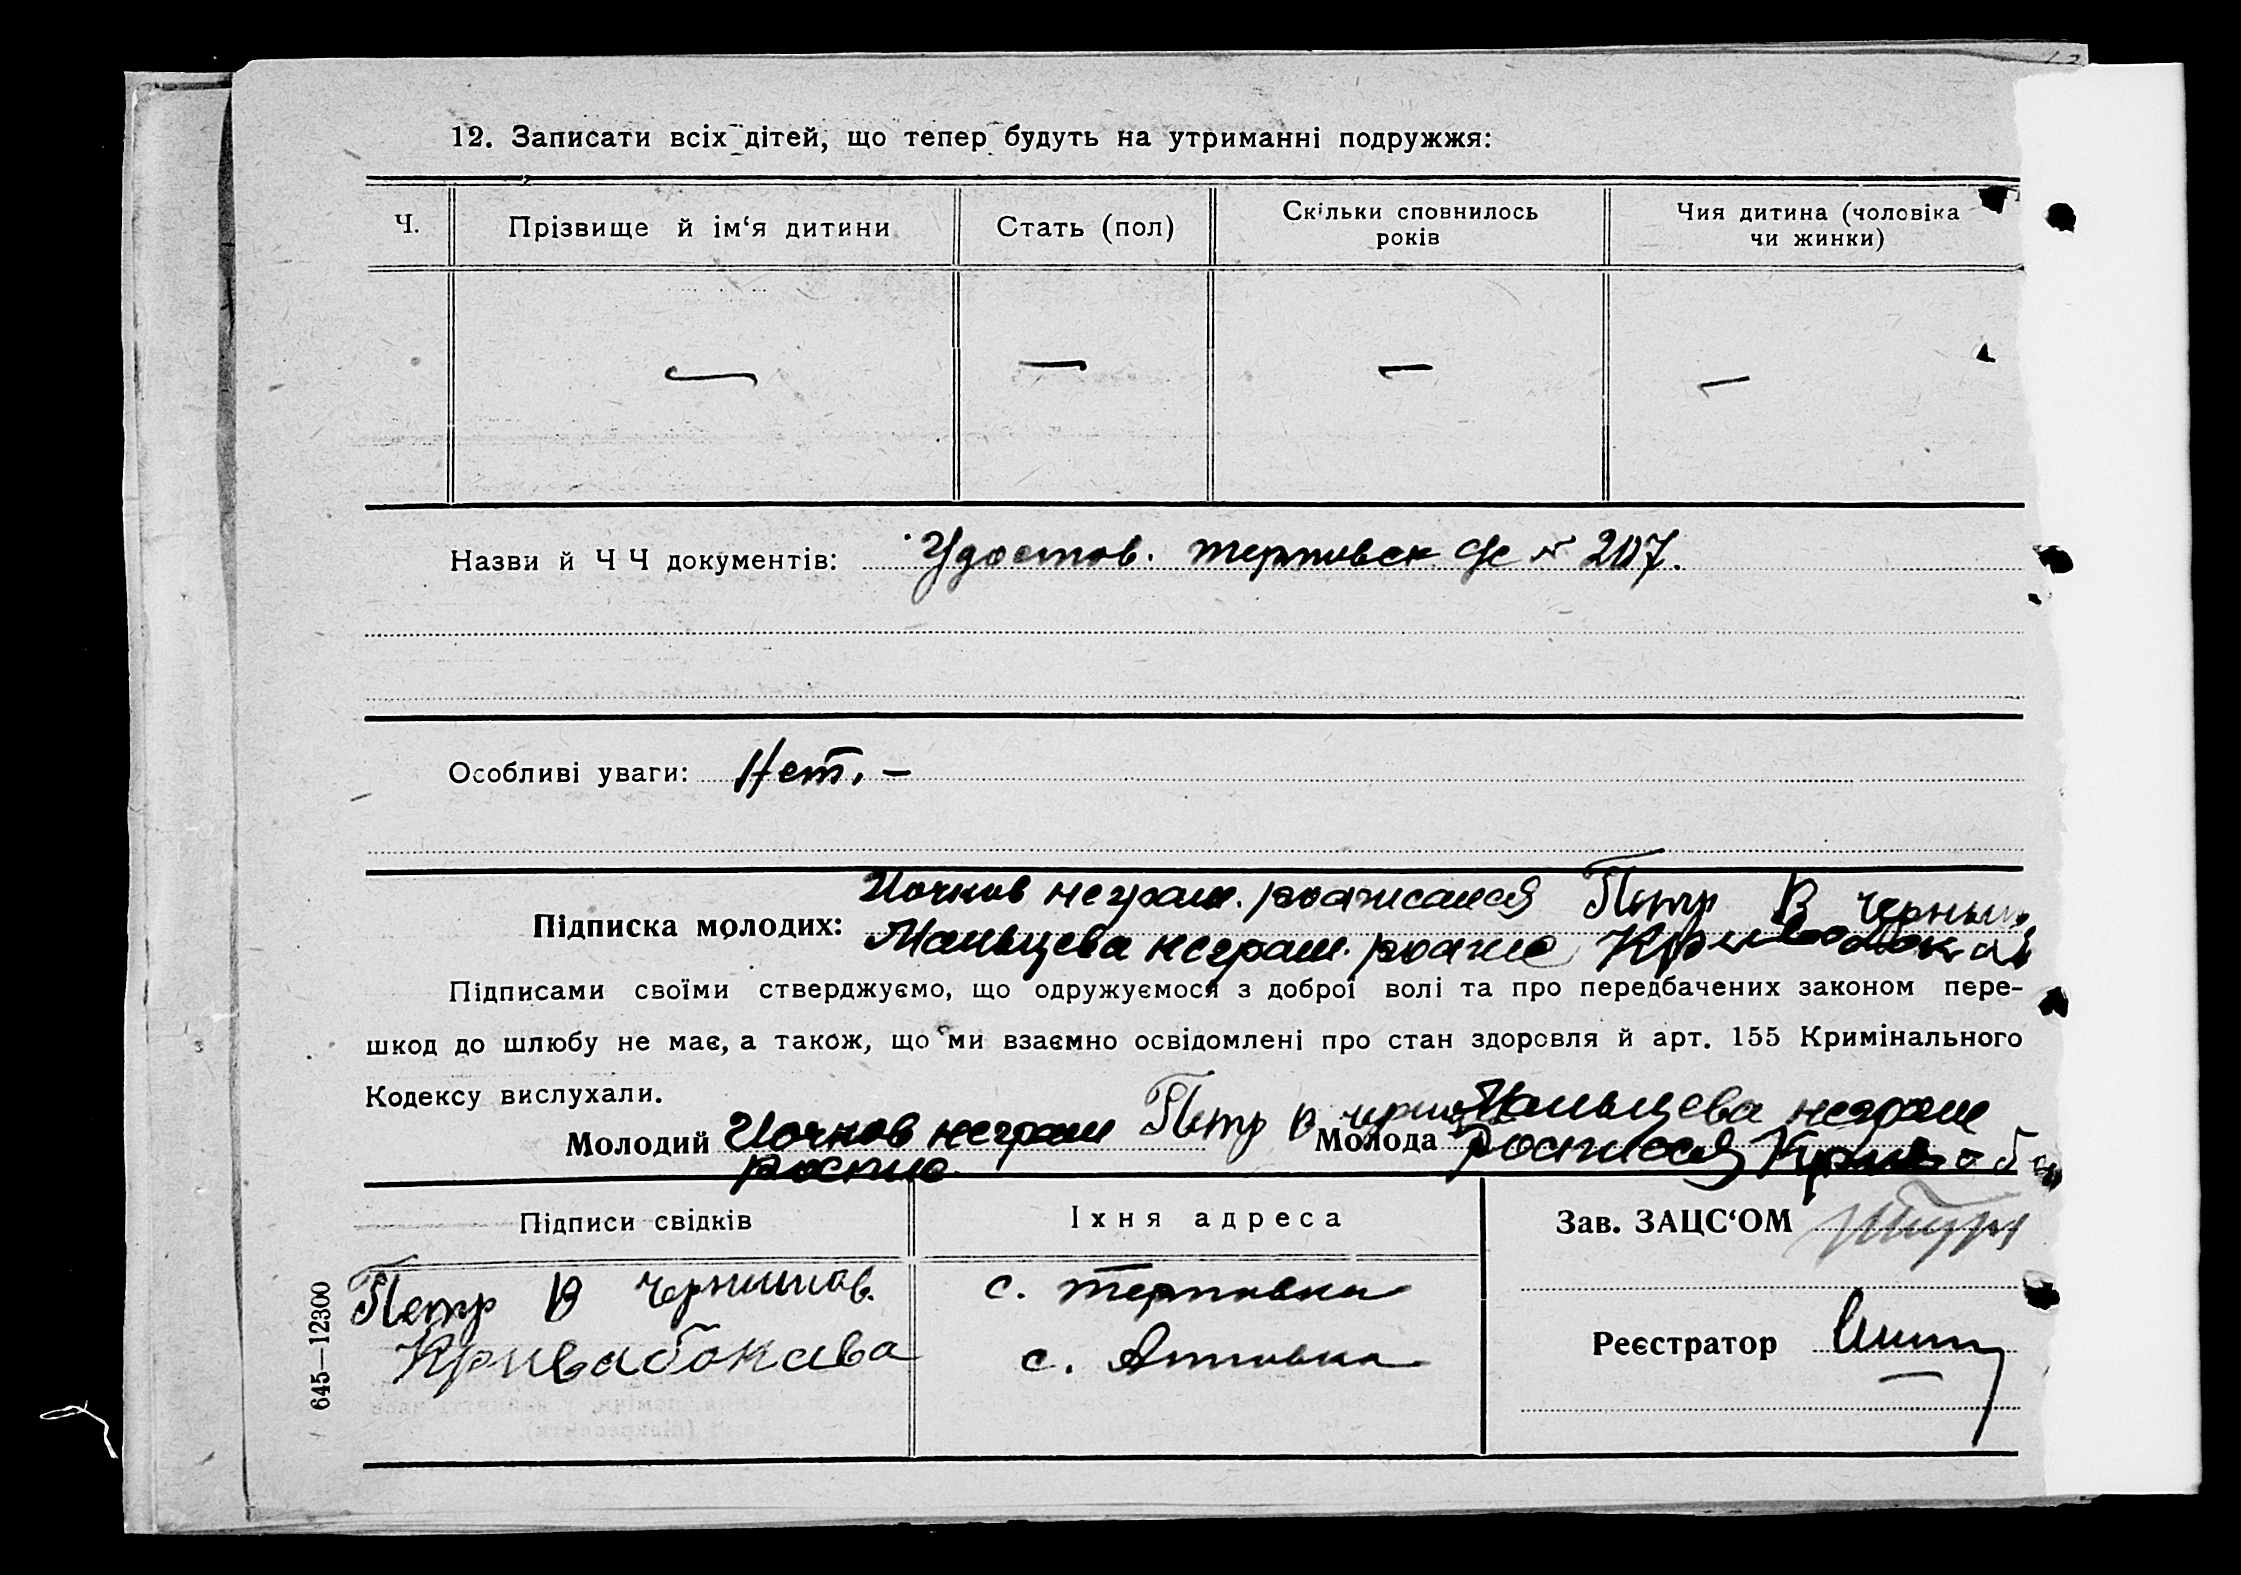 12. Записати всіх дітей, що тепер будуть на утриманні подружжя:
Ч. Прізвище й ім‘я дитини Стать (пол) Скільки сповнилось років Чия дитина (чоловіка чи жинки)
— — — —
Назви й Ч Ч документів: Удостов. терновск с/с № 207.
Особливі уваги: Нет. —
Ночков неграм. росписался Петр В черныш
Підписка молодих: Мальцева неграм. роспис Кривобокав
Підписами своїми стверджуємо, що одружуємося з доброї волі та про передбачених законом пере-
шкод до шлюбу не має, а також, що ми взаємно освідомлені про стан здоровля й арт. 155 Кримінального
Кодексу вислухали.
Молодий Ночков неграм Петр В Молода Мальцева неграм
роспис Росписася
Підписи свідків Їхня адреса Зав. ЗАЦС‘ОМ
Петр В чернышов. с. терновка
Кривабокава с.
Реєстратор
645—12300